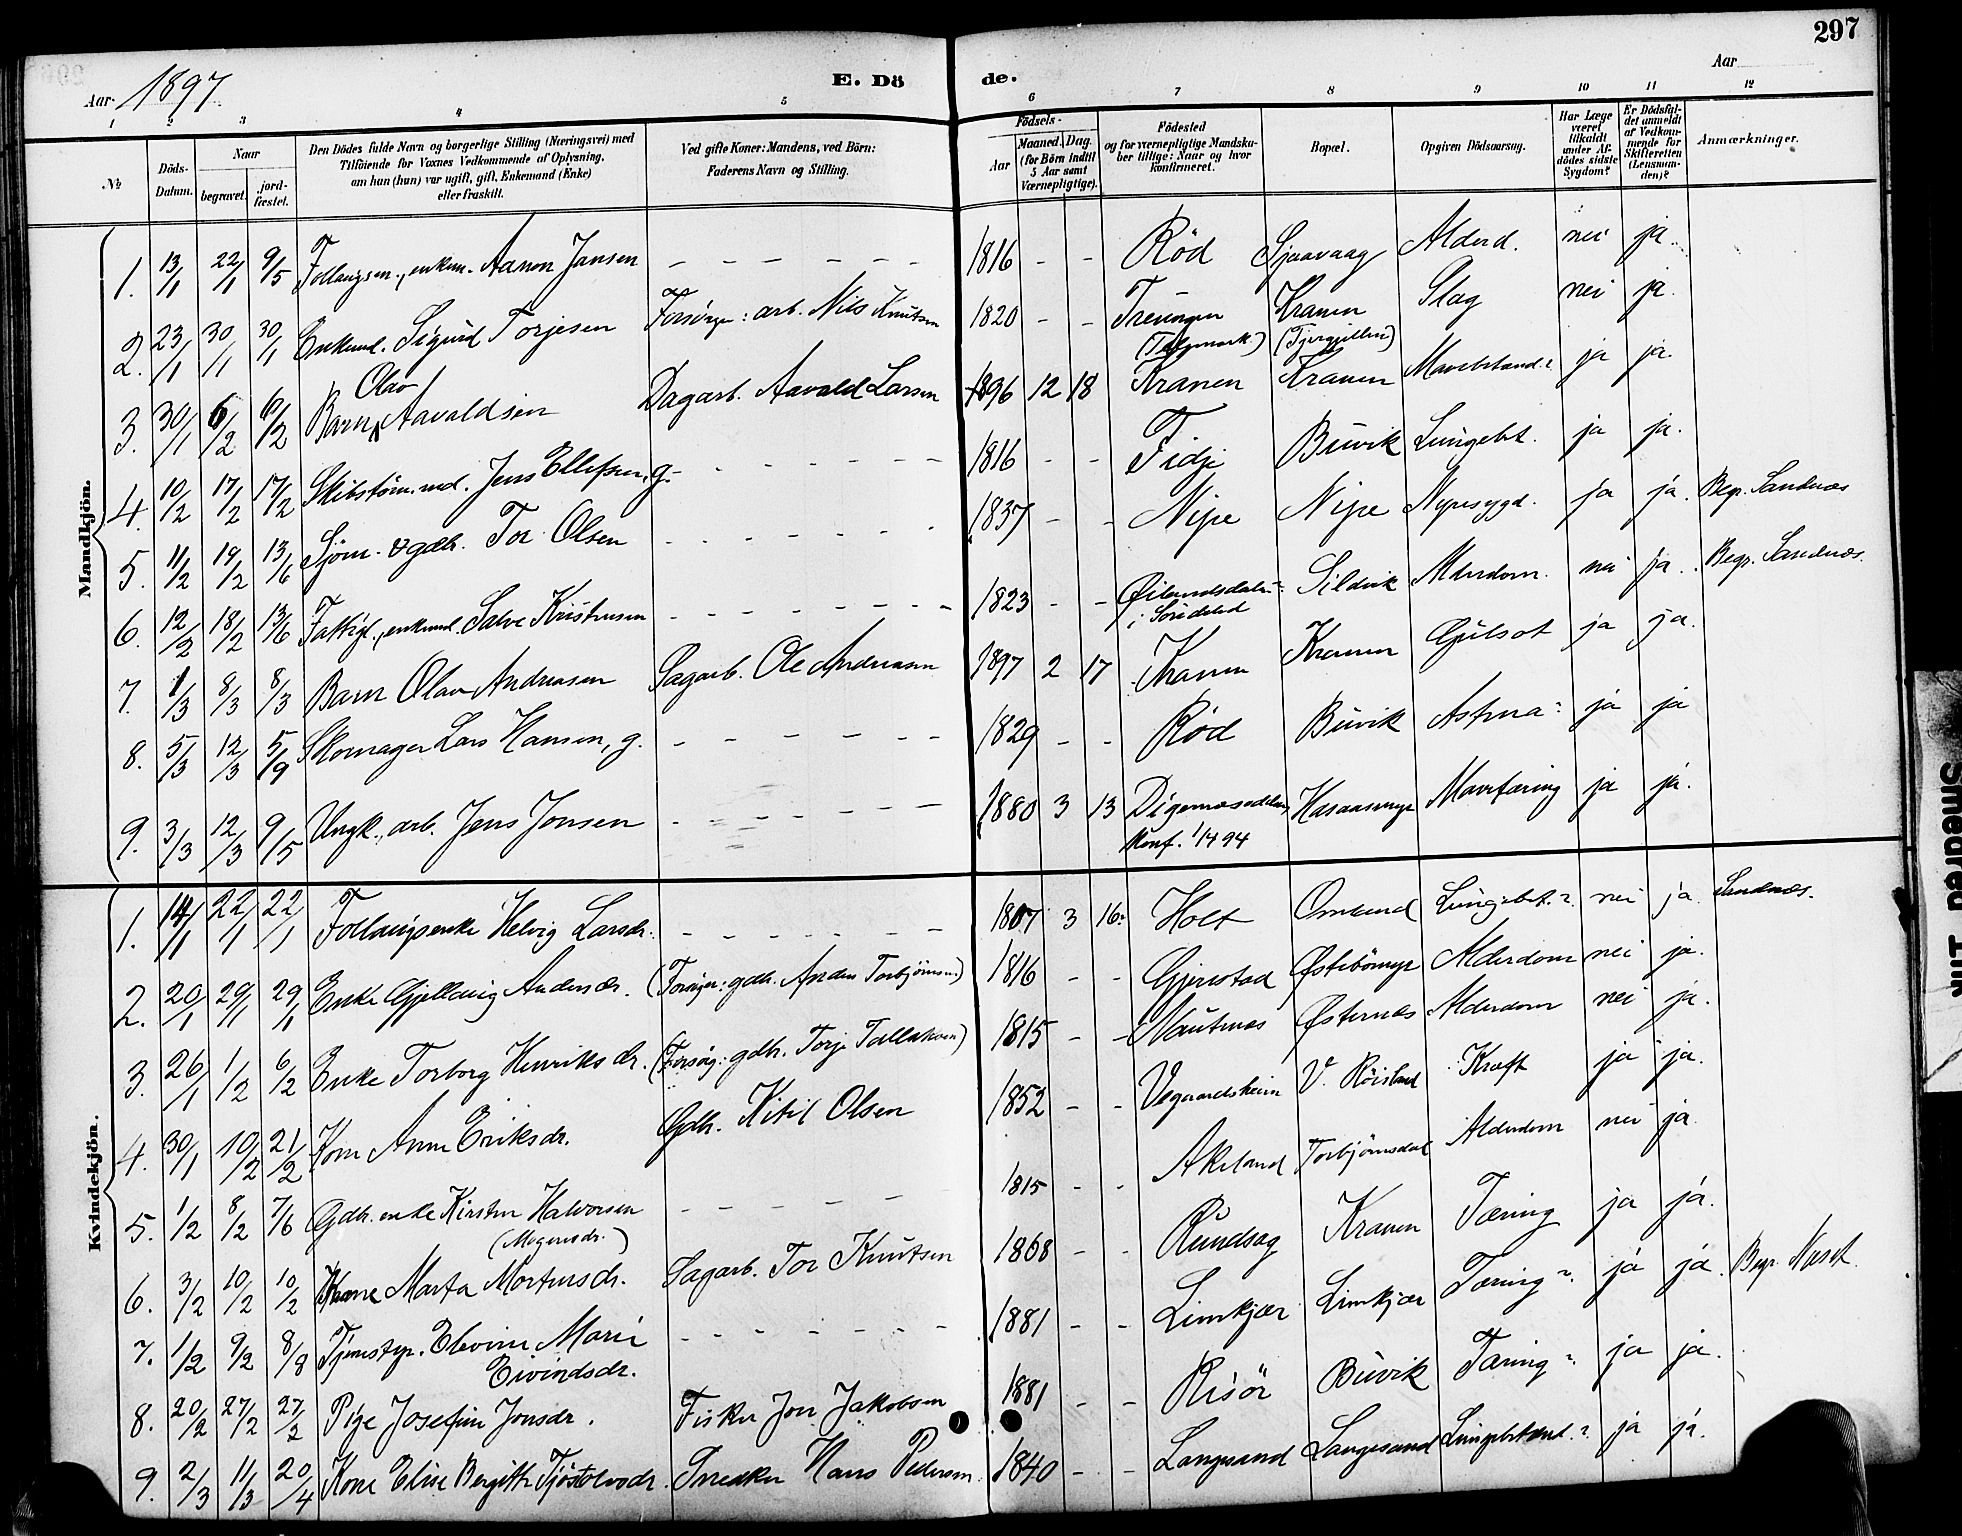 297
Aar 1897
E. Dö
de.
Aar
1 2 3 4 5 6 7 8 9 10 11 12
№
Döds-Datum.
Naar
begravet.
jord-fæstet.
Den Dödes fulde Navn og borgerlige Stilling (Næringsvei) med
Tilföiende for Voxnes Vedkommende af Oplysning,
om han (hun) var ugift, gift, Enkemand (Enke)
eller fraskilt.
Ved gifte Koner: Mandens, ved Börn:
Faderens Navn og Stilling.
Födsels-
Aar
Maaned. Dag.
(for Börn indtil
5 Aar samt
Værnepligtige).
Födested
og for værnepligtige Mandska-
ber tillige: Naar og hvor
konfirmeret.
Bopæl.
Opgiven Dödsaarsag.
Har Læge
været
tilkaldt
under Af-
dödes sidste
Sygdom?
Er Dödsfal-
det anmeldt
af Vedkom-
mende for
Skifteretten
(Lensman-
den)?
Anmærkninger.
Mandkjön.
1. 13/1 22/1 9/5 Follaugsm., enkem. Aanon Jansen - - - 1816 - - Rød Sjaavaag Alderd. nei ja.
2. 23/1 30/1 30/1 Enkemd. Sigurd Torjesen Forsörger: arb. Nils Knutsen 1820 - - Treungen (Telemark.) Kranen Slag nei ja.
3. 30/1 6/2 6/2 Barn Olav Aavaldsen Dagarb. Aavald Larsen 1896 12 18 Kranen Kranen ja ja.
4. 10/2 17/2 17/2 Skibstöm.md. Jens Ellefsen, g. - - - 1816 - - Fidje Buvik Lungebet. ja ja.
5. 11/2 19/2 13/6 Sjöm. & gdb. Tor Olsen - - - 1837 - - Nipe Nipe Nyresygd. ja ja. Begr. Sandnæs
6. 12/2 18/2 13/6 Fattigl., enkemd. Salve Kristensen - - - 1823 - - Sildvik Alderdom. nei ja. Begr. Sandnæs.
7. 1/3 8/3 8/3 Barn Olav Andreasen Sagarb. Ole Andreasen 1897 2 17 Kranen Kranen Gulsot ja ja.
8. 5/3 12/3 5/9 Skomager Lars Hansen, g. - - - 1829 - - Rød Buvik Astma ja ja
9. 3/3 12/3 9/5 Ungk., arb. Jens Jonsen - - - 1880 3 13 Konf. 1/1494 Mavetæring ja ja.
Kvindekjön.
1. 14/1 22/1 22/1 Follaugsenke Helvig Larsdr. - - - 1807 3 16 Holt Omlund Lungebet.? nei ja. Sandnæs.
2. 20/1 29/1 29/1 Enke Gjellaug Andersdr. (Forsörger: gdb. Anders Torbjörnsen) 1816 - - Gjerestad Østebömyr Alderdom nei ja.
3. 26/1 1/2 6/2 Enke Torborg Henriksdr. (Forsörg: gdb. Torje Tallaksen) 1815 - - Nautnes Østernæs Alderdom nei ja.
4. 30/1 10/2 21/2 Kone Anne Eriksdr. Gdb. Kitil Olsen 1852 - - Vegaardsheien V. Röisland Kræft ja ja.
5. 1/2 8/2 7/6 Gdb. enke Kirsten Halvorsen - - - 1815 - - Akeland Torbjörnsdal Alderdom nei ja.
6. 3/2 10/2 10/2 Kone Marta Mortensdr. Sagarb. Tor Knutsen 1868 - - Rundsag Kranen Tæring ja ja.
7. 1/2 9/2 8/8 Tjenestep. Elevine Marie Eivindsdr. - - - 1881 - - Limkjær Limkjær Tæring?. ja ja. Begr.
8. 20/2 27/2 27/2 Pige Josefine Jonsdr. Fisker Jon Jakobsen 1881 - - Risör Buvik Tæring?. ja ja.
9. 2/3 11/3 20/4 Kone Elise Bergitte Tjöstolvsdr. Snedker Hans Pedersen 1840 - - Langsand Langesand ja ja.